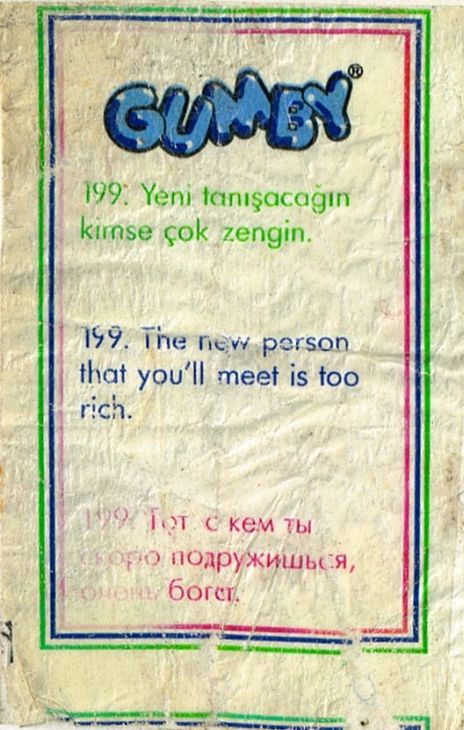 GUMBY®
199. Yeni tanışacağın
kimse çok zengin.
199. The new person
that you'll meet is too
rich.
199. Тот с кем ты
скоро подружишься,
очень богат.